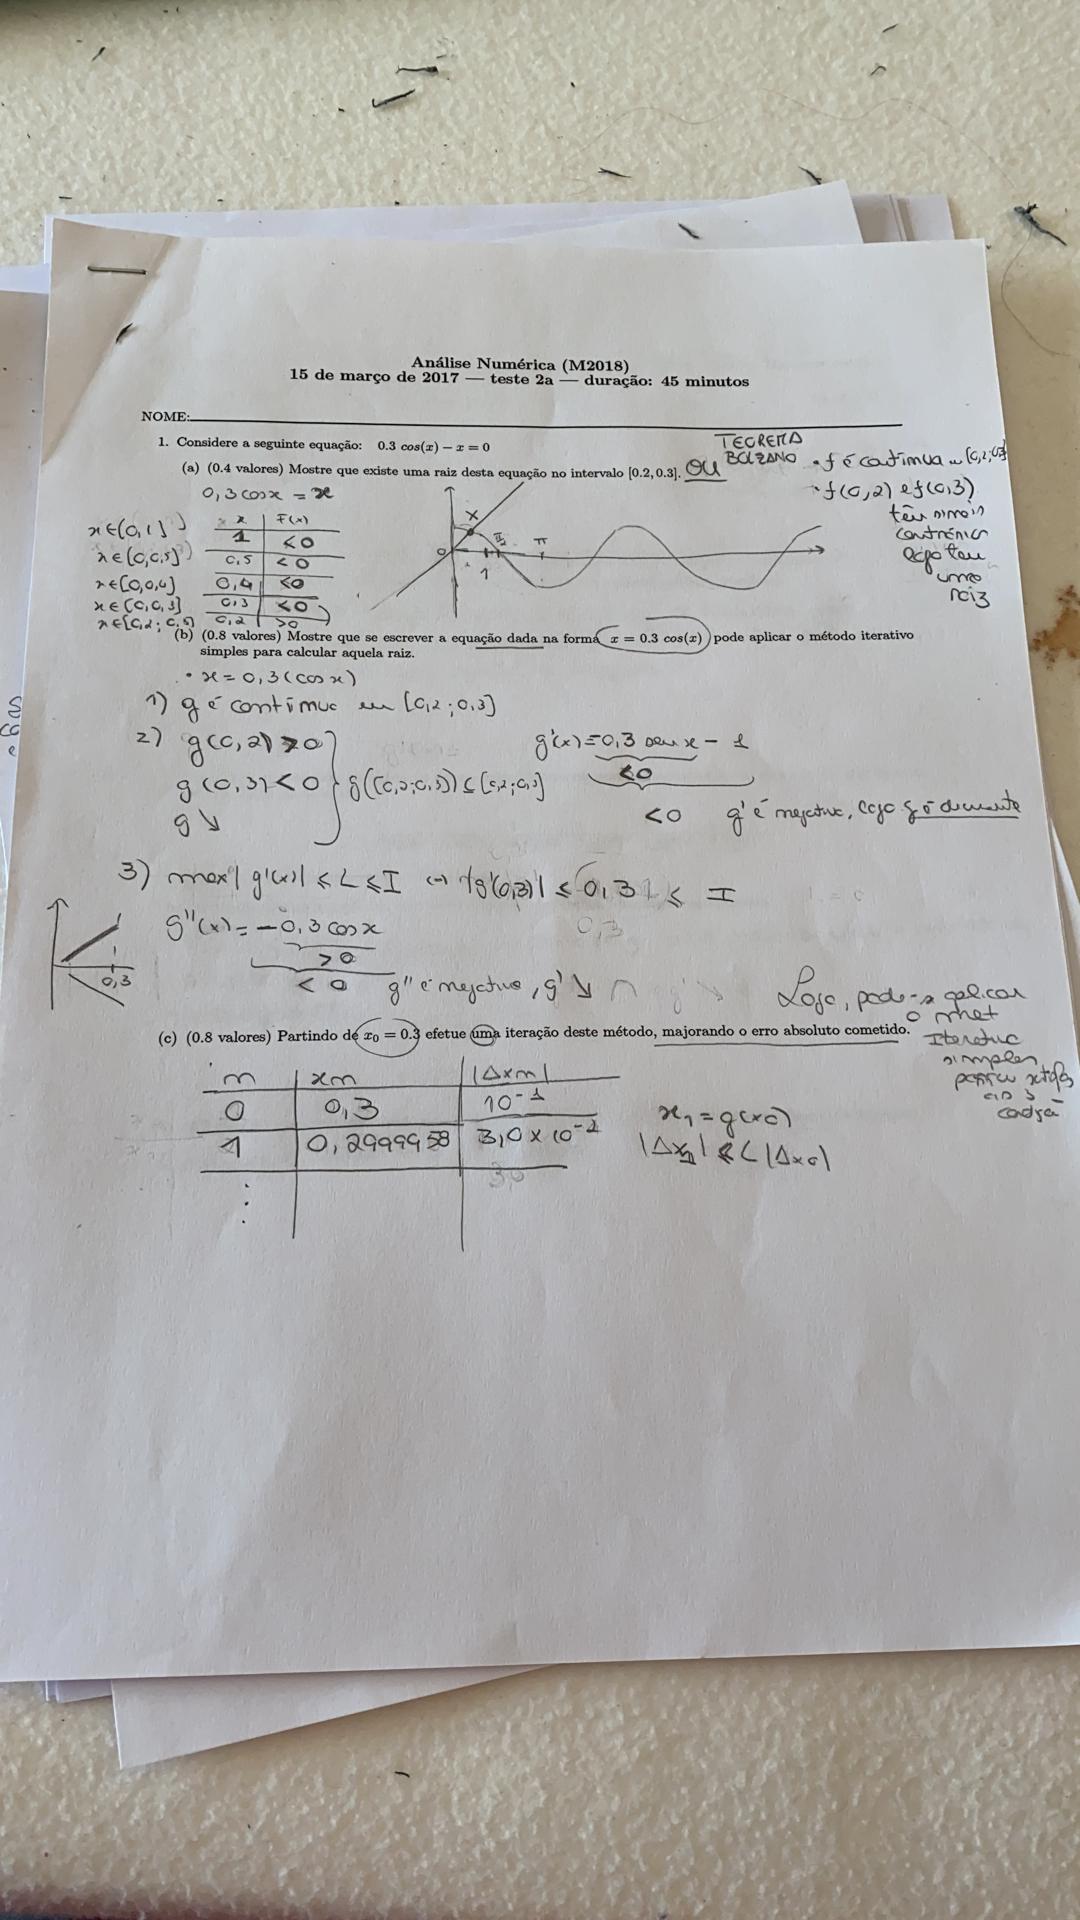 Análise Numérica (M2018)
15 de março de 2017 — teste 2a — duração: 45 minutos
NOME:
1. Considere a seguinte equação: 0.3 cos(x) − x = 0
(a) (0.4 valores) Mostre que existe uma raiz desta equação no intervalo [0.2, 0.3]. OU
TEOREMA
BOLZANO
• f é contínua em [0,2;0,3]
• f(0,2) e f(0,3)
têm sinais
contrários
logo tem
uma
raiz
0,3 cosx = x
x | F(x)
x∈[0,1] 1 | <0
x∈[0,0,5] 0,5 | <0
x∈[0,0,4] 0,4 | <0
x∈[0,0,3] 0,3 | <0
x∈[0,2; 0,3] 0,2 | >0
x
0
1
π
(b) (0.8 valores) Mostre que se escrever a equação dada na forma x = 0.3 cos(x) pode aplicar o método iterativo
simples para calcular aquela raiz.
• x = 0,3(cos x)
1) g é contínua em [0,2 ; 0,3]
2) g(0,2) > 0
g(0,3) < 0
g ↘
g([0,2;0,3]) ⊆ [0,2;0,3]
g'(x) = 0,3 sen x − 1
<0
<0 g' é negativa, logo g é decrescente
3) max| g'(x)| ⩽ L ⩽ I ↔ |g'(0,3)| ⩽ 0,3 ⩽ I
0,3
g''(x) = −0,3 cos x
>0
<0 g'' é negativa, g' ↘ ∩
0,3
Logo, pode-se aplicar
o met
Iterativo
simples
(c) (0.8 valores) Partindo de x₀ = 0.3 efetue uma iteração deste método, majorando o erro absoluto cometido.
m | xm | |Δxm|
0 | 0,3 | 10⁻¹
1 | 0,2999958 | 3,0 × 10⁻²
⋮
x₁ = g(x0)
|Δx₁| ⩽ L |Δx0|